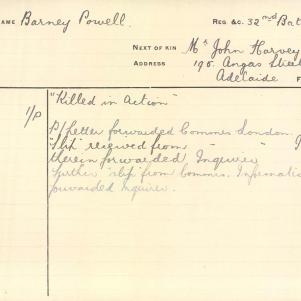 NAME Barney Powell. REG &C. 32nd Bat
NEXT OF KIN Mr John Harvey
ADDRESS 190. Angas Street
Adelaide F
1/P "Killed in Action"
B/Letter forwarded Commrs London.
"Slip" received from " "
therein forwarded Inquirer
Further "slip" from Commrs. Informatio
forwarded Inquirer.